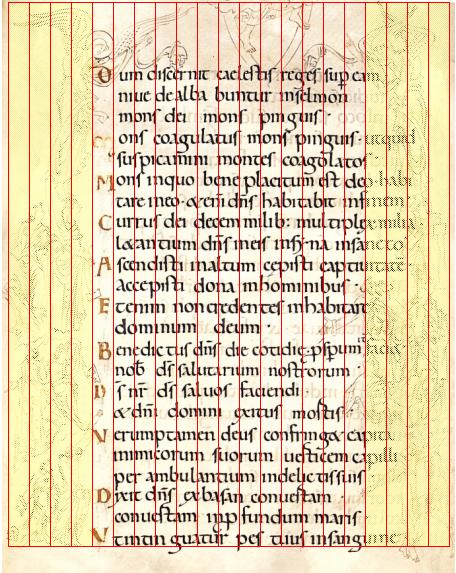 Dum discernit caelestis reges sup eam
niue de alba buntur inselmon
mons dei mons pinguis
Mons coagulatus mons pinguis· utquid
suspicamini montes coagulatos
Mons inquo bene placitum est deo habi
tare ineo &enī dn̄s habitabit infinem
Currus dei decem milib: multiplex milia
l&antium dn̄s ineis insyna insancto
Ascendisti inaltum cepisti captiuitatē
accepisti dona inhominibus·
Etenim noncredentes inhabitare
dominum deum·
Benedictus dn̄s die cotidie· faci&
nob̄ dſ salutarium nostrorum·
Ds̄ nr̄ ds̄ saluos faciendi
&dn̄i domini exitus mortis
Verumptamen deus confring& capita
inimicorum suorum uerticem capilli
per ambulantium indelictissuis
Dixit dn̄s exbasan conuertam
conuertam inp fundum maris·
Vt intinguatur pes tuus insanguine